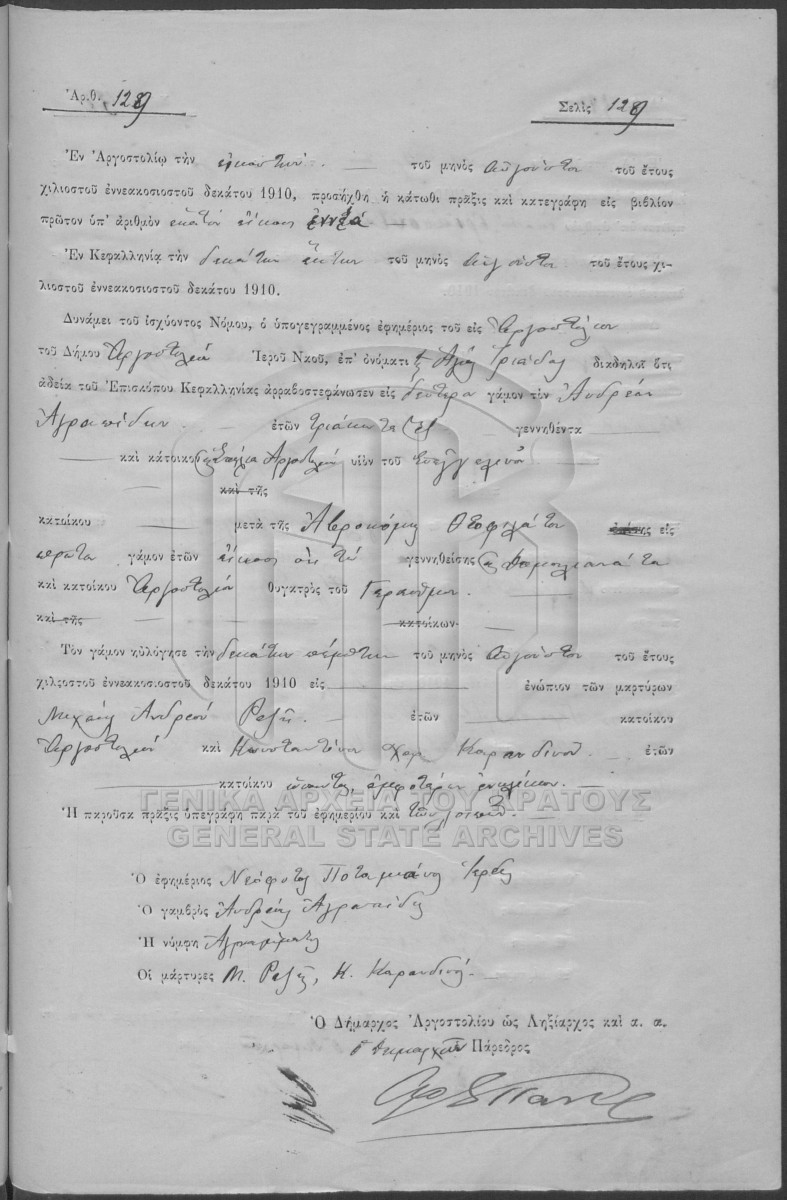 Ἀριθ. 129
Σελὶς 129
Ἐν Ἀργοστολίῳ τὴν εἰκοστὴν τοῦ μηνὸς Αὐγούστου τοῦ ἔτους
χιλιοστοῦ ἐννεακοσιοστοῦ δεκάτου 1910, προσήχθη ἡ κάτωθι πρᾶξις καὶ κατεγράφη εἰς βιβλίον
πρῶτον ὑπ' ἀριθμὸν ἑκατὸν εἴκοσι ἐννέα
Ἐν Κεφαλληνίᾳ τὴν δεκάτην ἕκτην τοῦ μηνὸς Αὐγούστου τοῦ ἔτους χι-
λιοστοῦ ἐννεακοσιοστοῦ δεκάτου 1910.
Δυνάμει τοῦ ἰσχύοντος Νόμου, ὁ ὑπογεγραμμένος ἐφημέριος τοῦ εἰς Ἀργοστόλιον
τοῦ Δήμου Ἀργοστολίου Ἱεροῦ Ναοῦ, ἐπ' ὀνόματι τῆς Ἁγίας Τριάδος διαδηλοῖ ὅτι
ἀδείᾳ τοῦ Ἐπισκόπου Κεφαλληνίας ἀρραβοστεφάνωσεν εἰς δεύτερον γάμον τὸν Ἀνδρέαν
Ἀγραπίδην ἐτῶν τριάκοντα γεννηθέντα
καὶ κάτοικον Ἀργοστολίου υἱὸν τοῦ Εὐαγγελινοῦ
καὶ τῆς
κατοίκου μετὰ τῆς Θεοφιλάτου εἰς
πρῶτον γάμον ἐτῶν εἴκοσι ὀκτώ γεννηθείσης
καὶ κατοίκου Ἀργοστολίου θυγατρὸς τοῦ Γερασίμου
καὶ τῆς κατοίκων
Τὸν γάμον ηὐλόγησε τὴν δεκάτην πέμπτην τοῦ μηνὸς Αὐγούστου τοῦ ἔτους
χιλιοστοῦ ἐννεακοσιοστοῦ δεκάτου 1910 εἰς ἐνώπιον τῶν μαρτύρων
Μιχαὴλ Ἀνδρέου Ραζῆ ἐτῶν κατοίκου
Ἀργοστολίου καὶ Κωνσταντίνου Χαρ. Καρανδινοῦ ἐτῶν
κατοίκου ὡσαύτως, ἀμφοτέρων ἐνηλίκων.
Ἡ παροῦσα πρᾶξις ὑπεγράφη παρὰ τοῦ ἐφημερίου καὶ τῶν λοιπῶν.
ΓΕΝΙΚΑ ΑΡΧΕΙΑ ΤΟΥ ΚΡΑΤΟΥΣ
GENERAL STATE ARCHIVES
Ὁ ἐφημέριος Νεόφυτος Ποταμιάνος Ἱερεύς
Ὁ γαμβρὸς Ἀνδρέας Ἀγραπίδης
Ἡ νύμφη Ἀγράμματος
Οἱ μάρτυρες Μ. Ραζῆς, Κ. Καρανδινός.
Ὁ Δήμαρχος Ἀργοστολίου ὡς Ληξίαρχος καὶ α. α.
ὁ Δημαρχικὸς Πάρεδρος